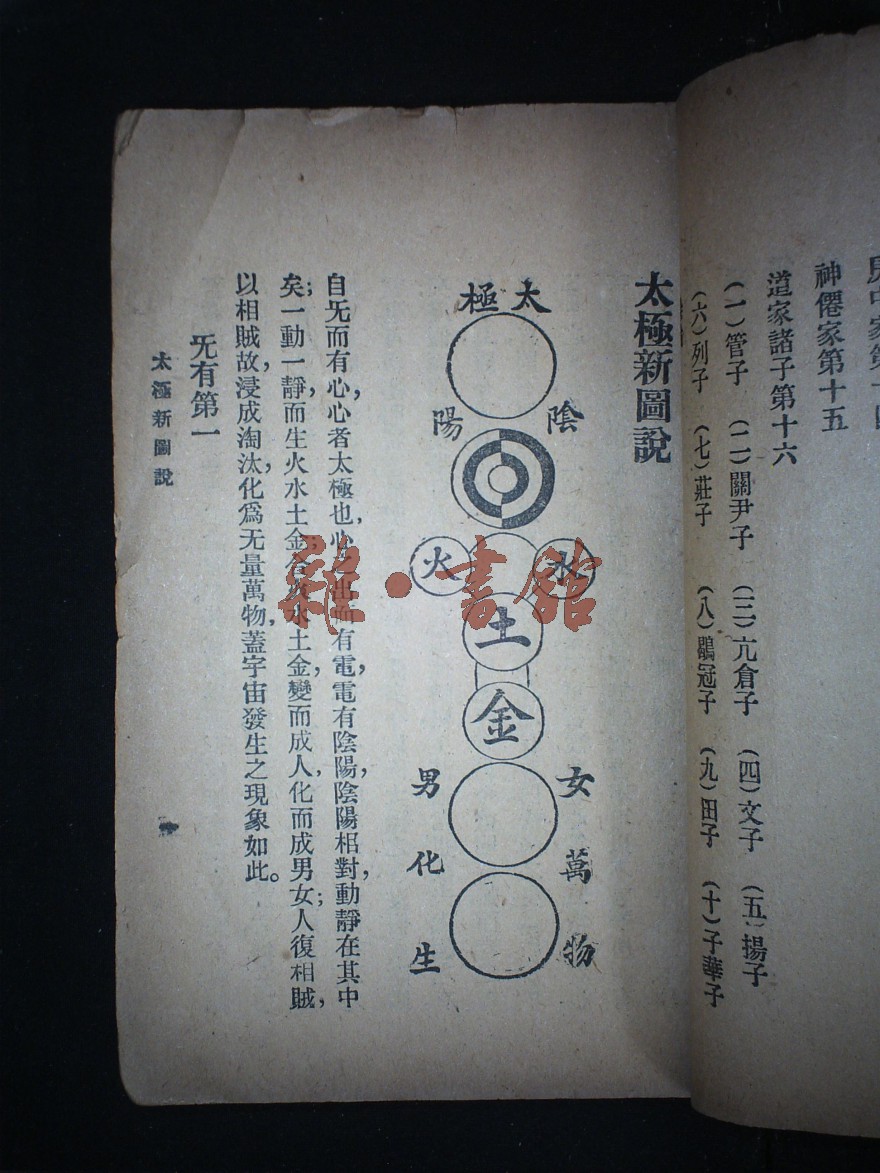 中家第十
神僊家第十五
道家諸子第十六
(一)管子 (二)關尹子 (三)亢倉子 (四)文子 (五)揚子
(六)列子 (七)莊子 (八)鶡冠子 (九)田子 (十)子華子
太極新圖說
太極
陰 陽
水 火
土
金
女 男
萬物 化生
自旡而有心,心者太極也,心之出而有電,電有陰陽,陰陽相對,動靜在其中
矣;一動一靜,而生火水土金;合火水土金,變而成人,化而成男女;人復相賊,
以相賊故,浸成淘汰,化爲无量萬物,蓋宇宙發生之現象如此。
旡有第一
太極新圖說
雜·書館